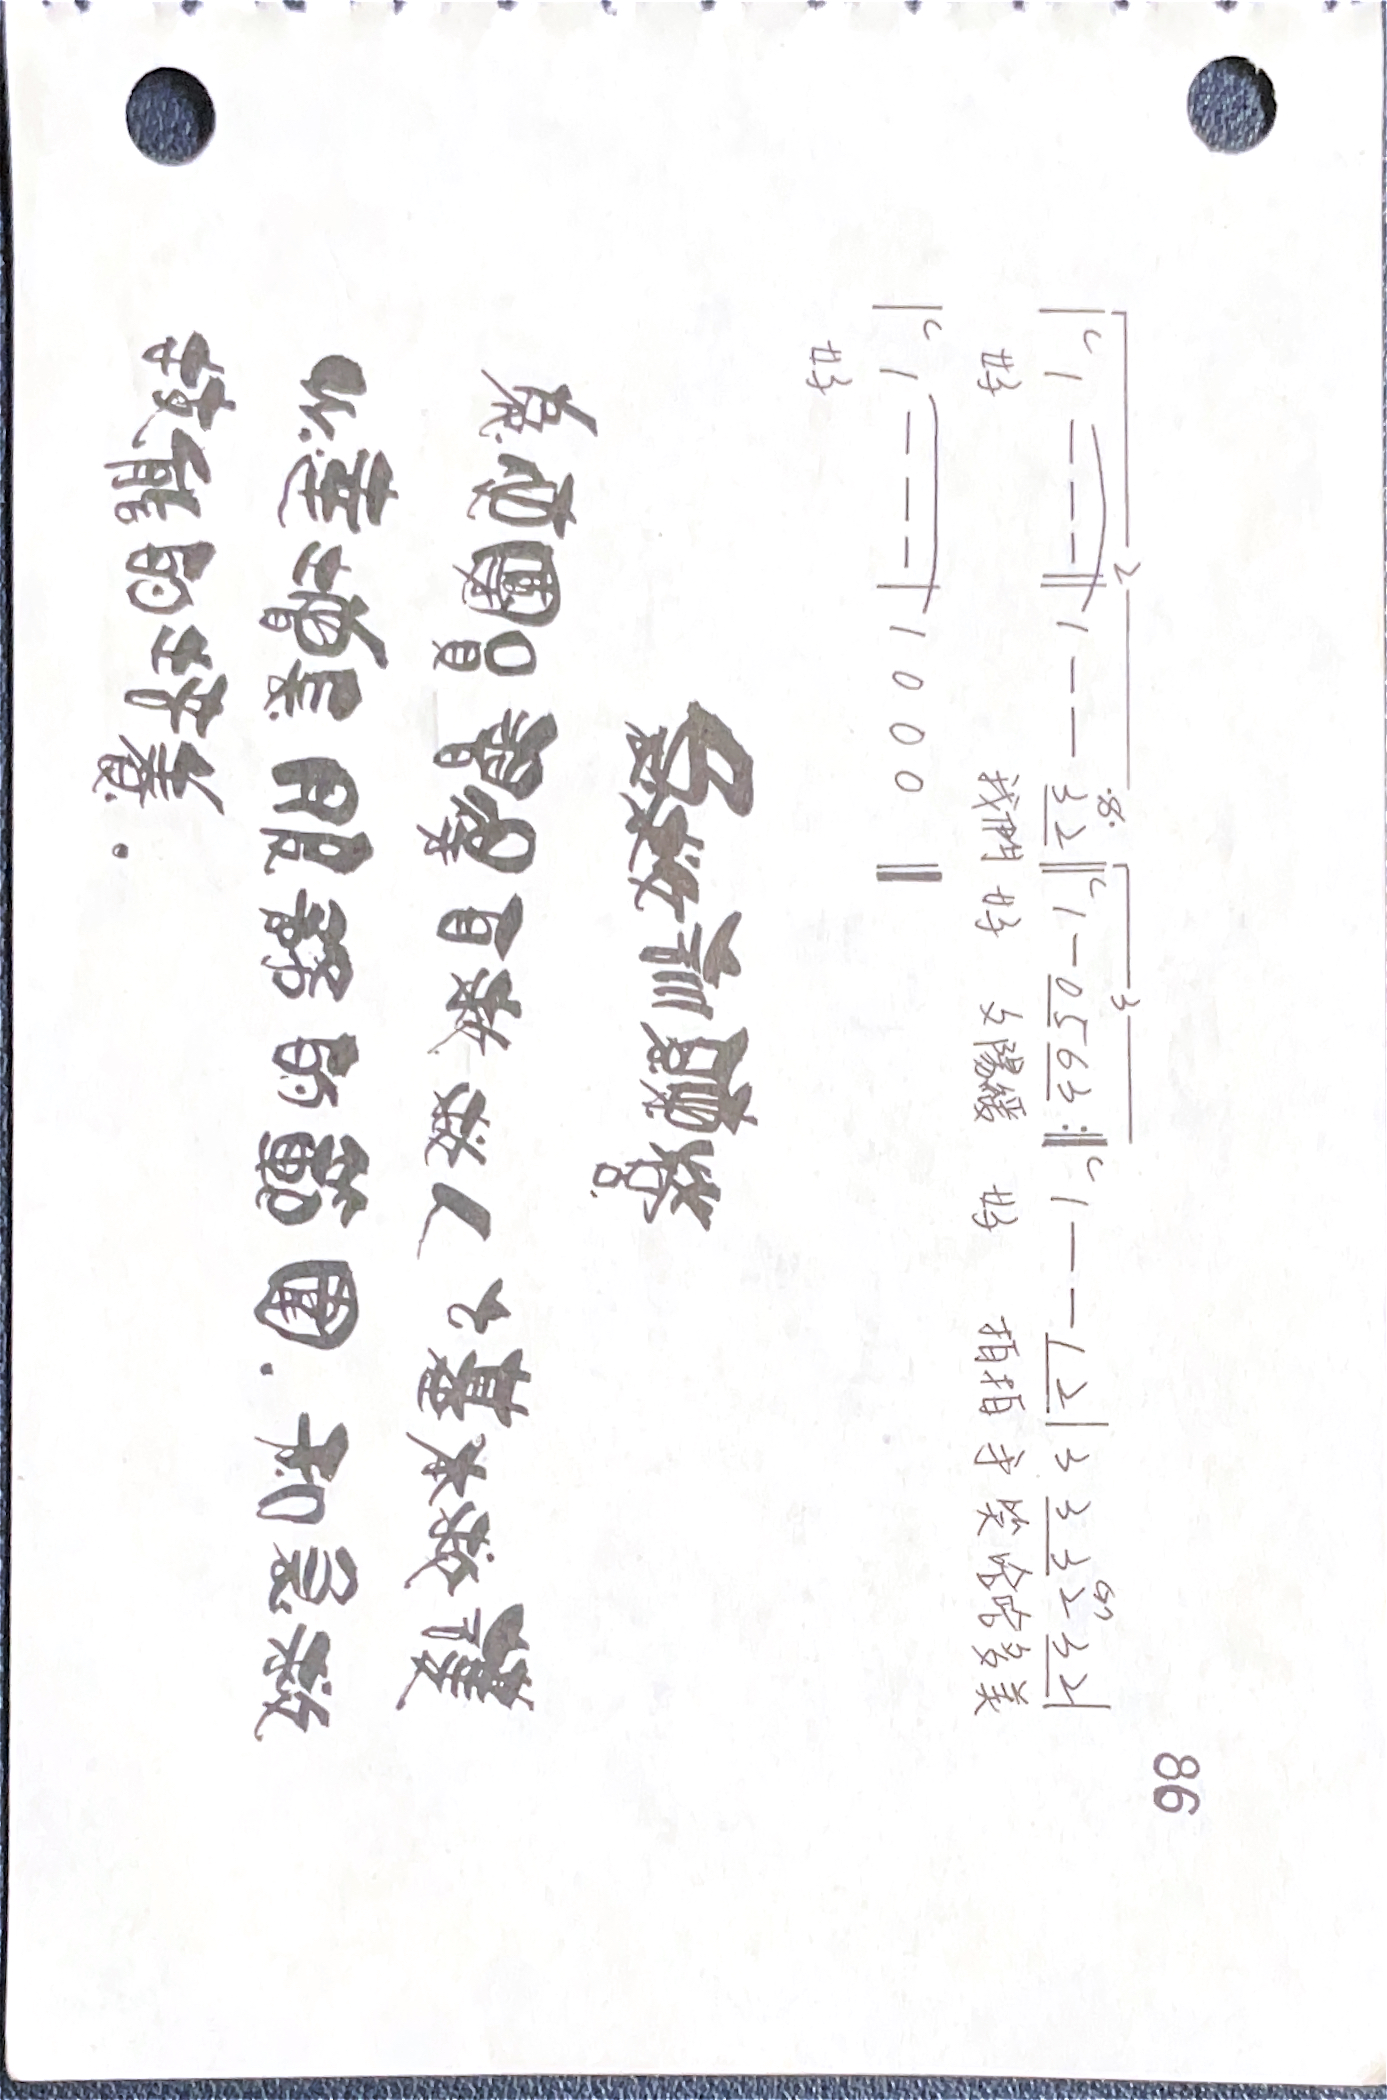 86
2 3
|C 1 - - - || 1 - - 3 2 || C 1 - 0 5 6 3 :|| C 1 - - 1 2 | 3 3 3 2 3 2 |
好 我們 好 夕陽緩 好 拍拍手笑哈哈多美
|C 1 - - - | 1 0 0 0 ||
好
急救訓練營
為使團員習得自救救人之基本救護
以達增長服務的範圍.和急救
技能的培養.